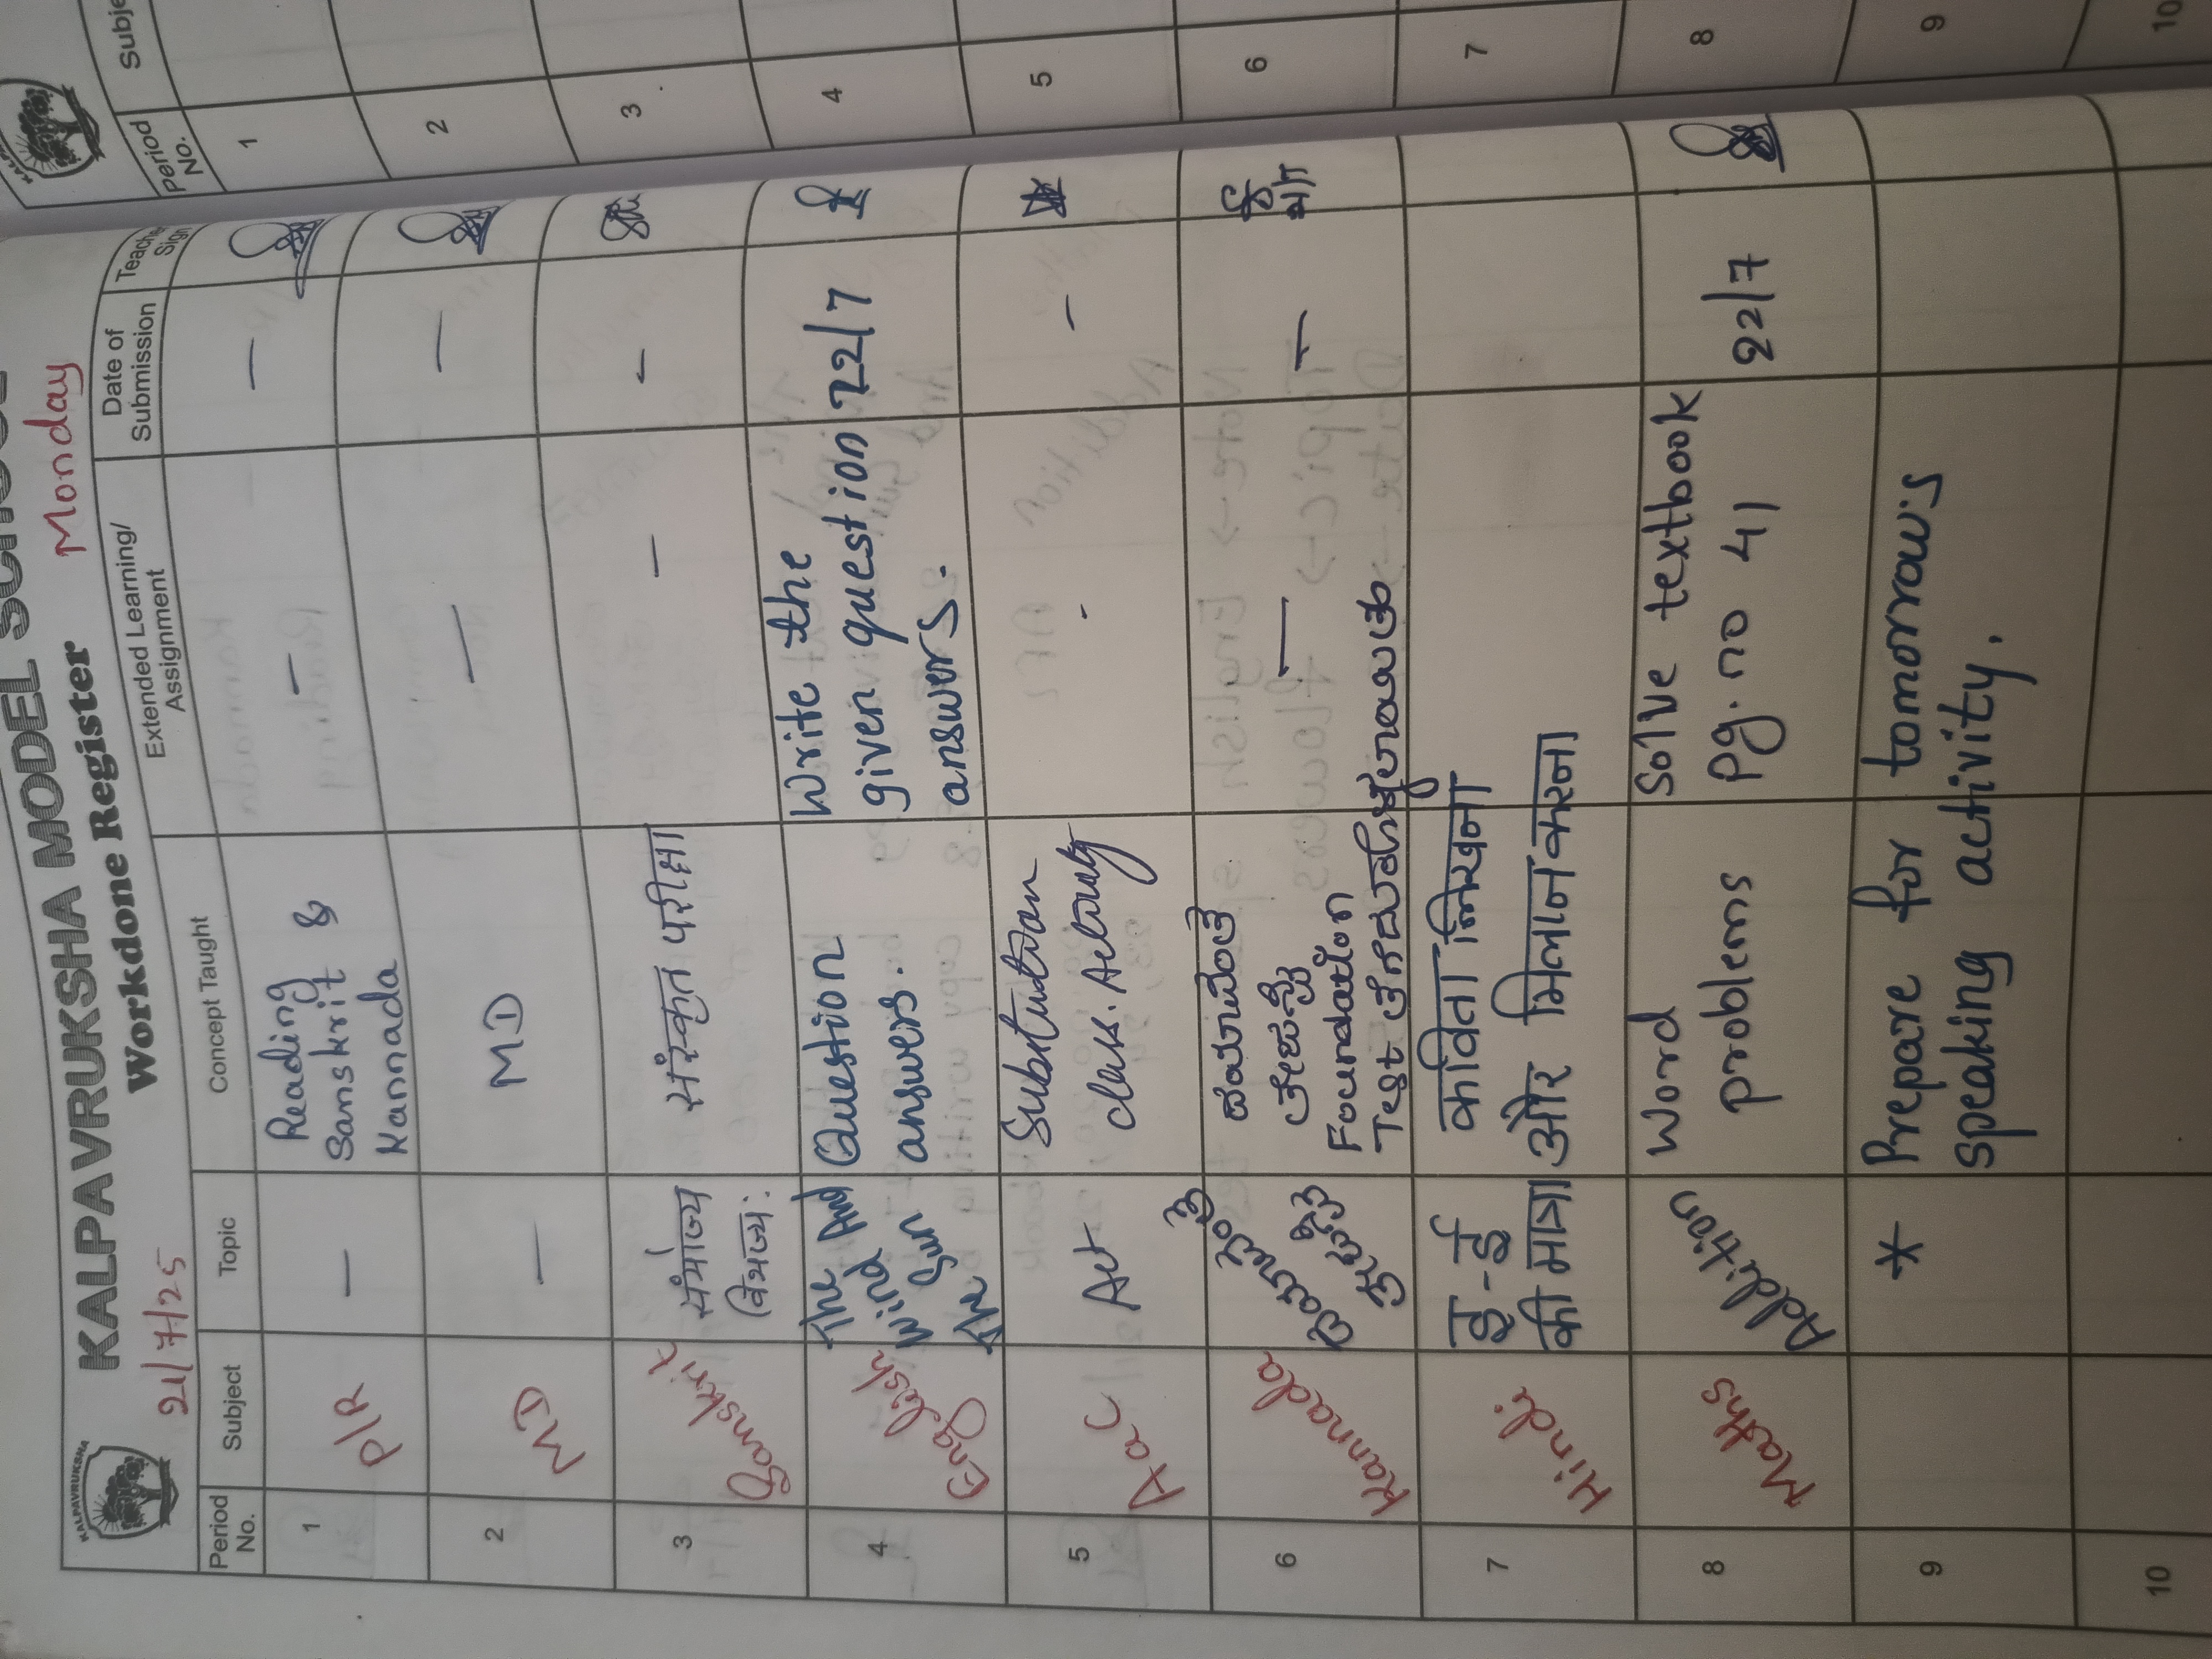 KALPAVRUKSHA
KALPAVRUKSHA MODEL SCHOOL
21/7/25
Workdone Register
Monday
Period No.
Subject
Topic
Concept Taught
Extended Learning/ Assignment
Date of Submission
Teacher Sign
1
P/R
—
Reading
Sanskrit &
Kannada
—
—
2
MD
—
MD
—
—
3
Sanskrit
संयोज्य
विभज्य:
संस्कृत परीक्षा
—
—
4
English
The
Wind And
The Sun
Question
answers.
Write the
given question
answers.
22/7
5
Act
Substitution
class. Activity
-
-
6
Kannada
Foundation
Test
—
—
7
Hindi
इ-ई
की मात्रा
कविता लिखना
और मिलान करना
8
Maths
Addition
Word
problems
Solve textbook
Pg. no 41
22/7
9
* Prepare for tomorrow's
speaking activity.
10
Period No.
Subje
1
2
3
4
5
6
7
8
9
10